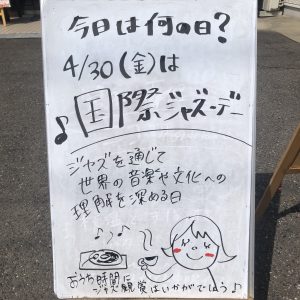 今日は何の日?
4/30(金)は
♪国際ジャズ・デー
ジャズを通じて
世界の音楽や文化への
理解を深める日
おうち時間に
ジャズ観賞はいかがでしょう♪